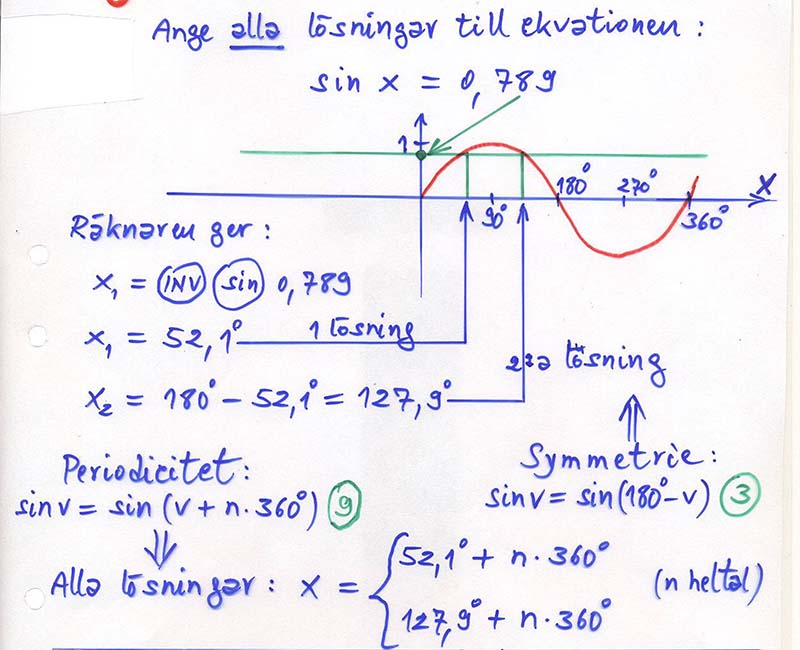 Ange alla lösningar till ekvationen :
sin x = 0,789
1
180° 270° X
90° 360°
Räknaren ger :
x₁ = INV sin 0,789
x₁ = 52,1° 1 lösning
2:a lösning
x₂ = 180° - 52,1° = 127,9°
Periodicitet :
sin v = sin (v + n·360°) 9
Symmetrie :
sin v = sin(180° - v) 3
Alla lösningar : x = { 52,1° + n·360°
127,9° + n·360°
(n heltal)